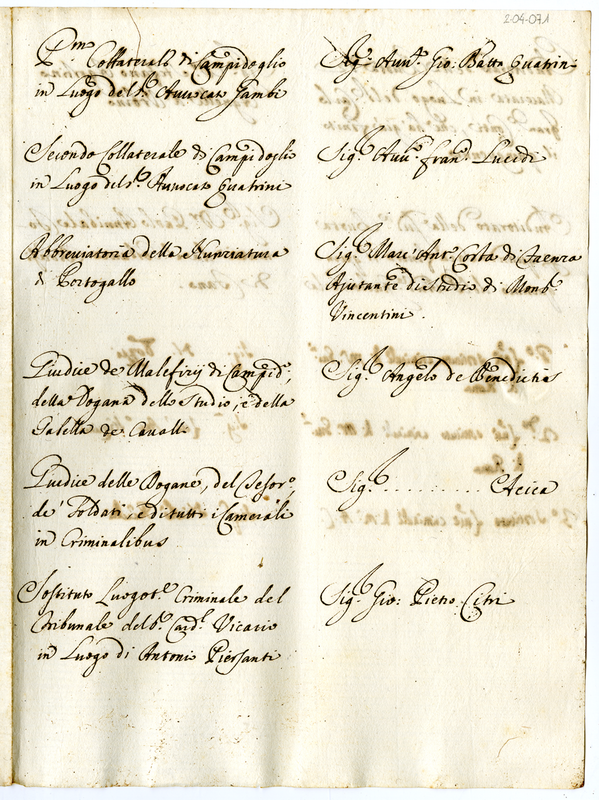 2-04-071
Pmo Collaterale di Campidoglio
in Luogo del Sr. Avvocato Gambi
Sigr. Avv. Gio: Batta Guatrini
Secondo Collaterale di Campidoglio
in Luogo del Sr. Avvocato Guatrini
Sigr. Avv. Franc. Lucidi
Abbreviatoria della Nunziatura
di Portogallo
Sigr. Marc'Anto. Costa di Faenza
Ajutante di Studio di Monsr.
Vincentini
Giudice de Malefizij di Campido,
della Dogana dello Studio, e della
Galetta de Cavalli
Sigr. Angelo de Benedictis
Giudice delle Dogane, del Tesoro,
de' Soldati, e di tutti i Camerali
in Criminalibus
Sigr. .......... 
Sostituto Luogote. Criminale del
Tribunale del Sr. Cardl. Vicario
in Luogo di Antonio Piersanti
Sigr. Gio: Pietro Citri